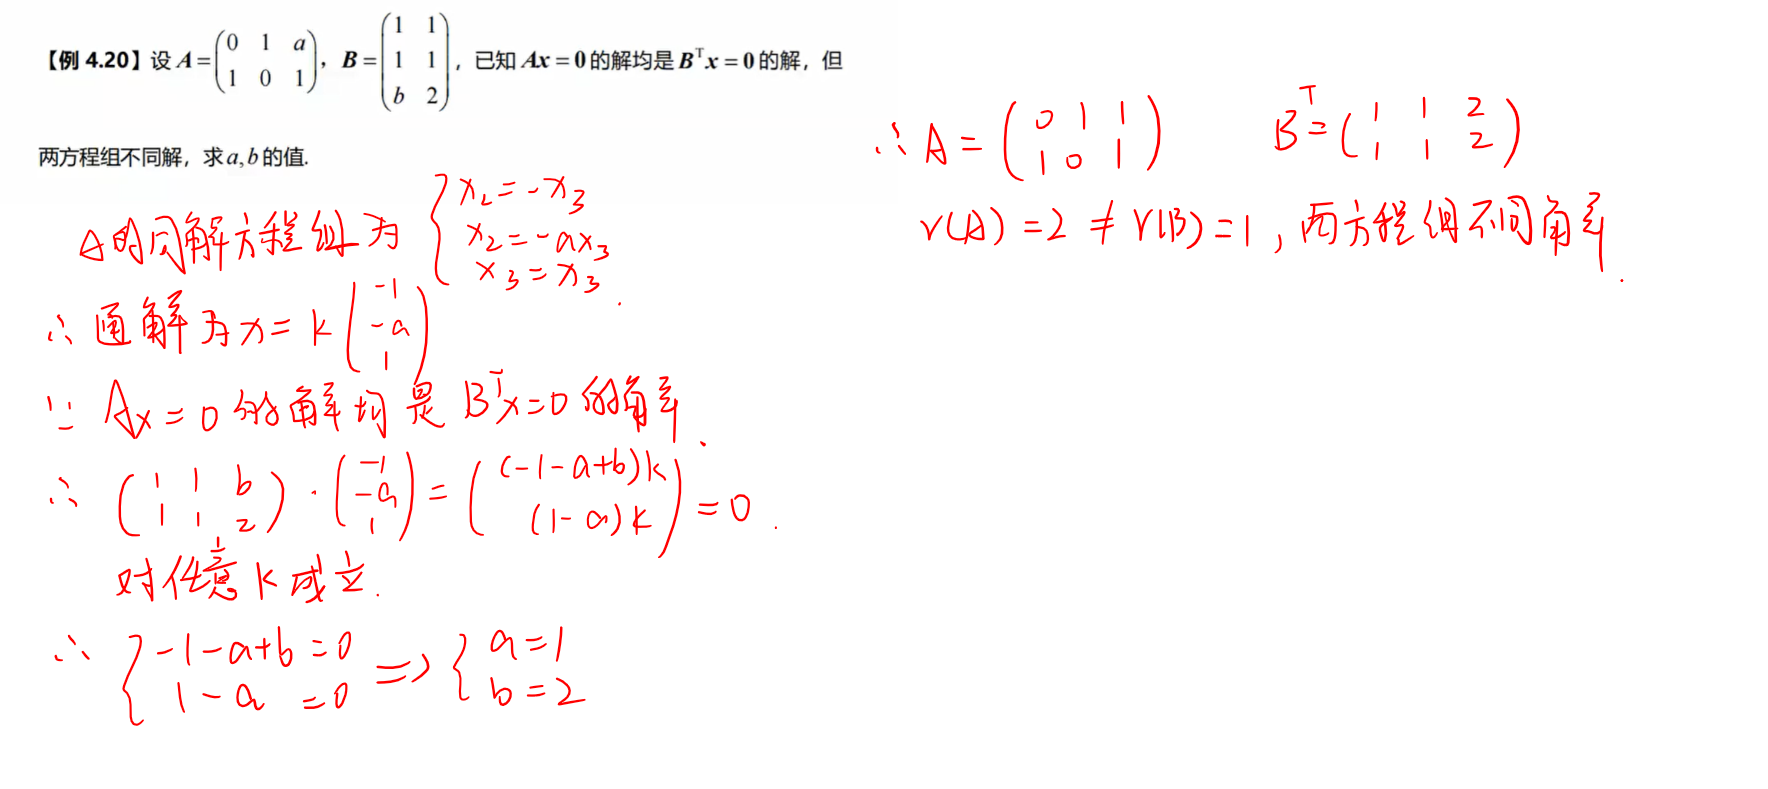 【例 4.20】设 A = (0 1 a; 1 0 1), B = (1 1; 1 1; b 2), 已知 Ax = 0 的解均是 Bᵀx = 0 的解, 但
两方程组不同解, 求 a, b 的值.
A的同解方程组为 { x₂ = -x₃
x₂ = -ax₃
x₃ = x₃ .
∴ 通解为 x = k (-1; -a; 1)
∵ Ax = 0 的解均是 Bᵀx = 0 的解.
∴ (1 1 b; 1 1 2) · (-1; -a; 1) = ((-1-a+b)k; (1-a)k) = 0 .
对任意 k 成立.
∴ { -1-a+b = 0
1-a = 0 => { a = 1
b = 2
∴ A = (0 1 1; 1 0 1) Bᵀ = (1 1 2; 1 1 2)
r(A) = 2 ≠ r(B) = 1, 两方程组不同解.